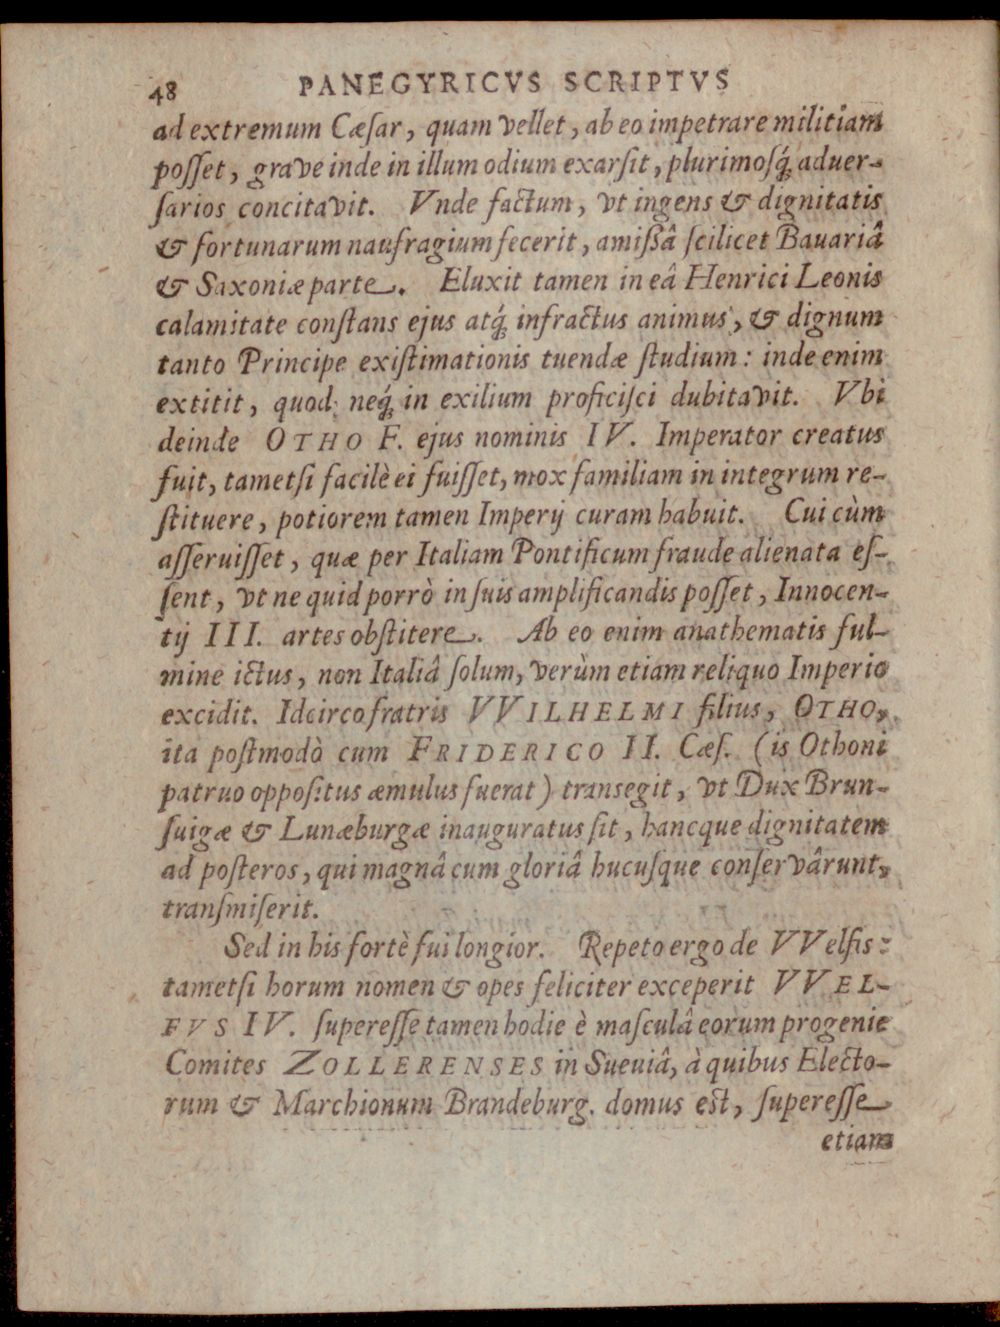 48 PANEGYRICVS SCRIPTVS
ad extremum Cæſar, quam vellet, ab eo impetrare militiam
poſſet, grave inde in illum odium exarſit, plurimoſq́; aduer-
ſarios concitavit. Vnde factum, vt ingens & dignitatis
& fortunarum naufragium fecerit, amiſſâ ſcilicet Bauariâ
& Saxoniæ parte. Eluxit tamen in eâ Henrici Leonis
calamitate conſtans ejus atq́; infractus animus, & dignum
tanto Principe exiſtimationis tuendæ ſtudium: inde enim
extitit, quod neq́; in exilium proficiſci dubitavit. Vbi
deinde OTHO F. ejus nominis IV. Imperator creatus
fuit, tametſi facilè ei fuiſſet, mox familiam in integrum re-
ſtituere, potiorem tamen Imperij curam habuit. Cui cùm
aſſeruiſſet, quæ per Italiam Pontificum fraude alienata eſ-
ſent, vt ne quid porrò in ſuis amplificandis poſſet, Innocen-
tij III. artes obſtitere. Ab eo enim anathematis ful-
mine ictus, non Italiâ ſolum, verùm etiam reliquo Imperio
excidit. Idcirco fratris VVILHELMI filius, OTHO,
ita poſtmodò cum FRIDERICO II. Cæſ. (is Othoni
patruo oppoſitus æmulus fuerat) transegit, vt Dux Brun-
ſuigæ & Lunæburgæ inauguratus ſit, hancque dignitatem
ad poſteros, qui magnâ cum gloriâ hucuſque conſervârunt,
tranſmiſerit.
Sed in his fortè fui longior. Repeto ergo de VVelfis:
tametſi horum nomen & opes feliciter exceperit VVEL-
FVS IV. ſupereſſe tamen hodie è maſculâ eorum progenie
Comites ZOLLERENSES in Sueuiâ, à quibus Electo-
rum & Marchionum Brandeburg. domus eſt, ſupereſſe
etiam